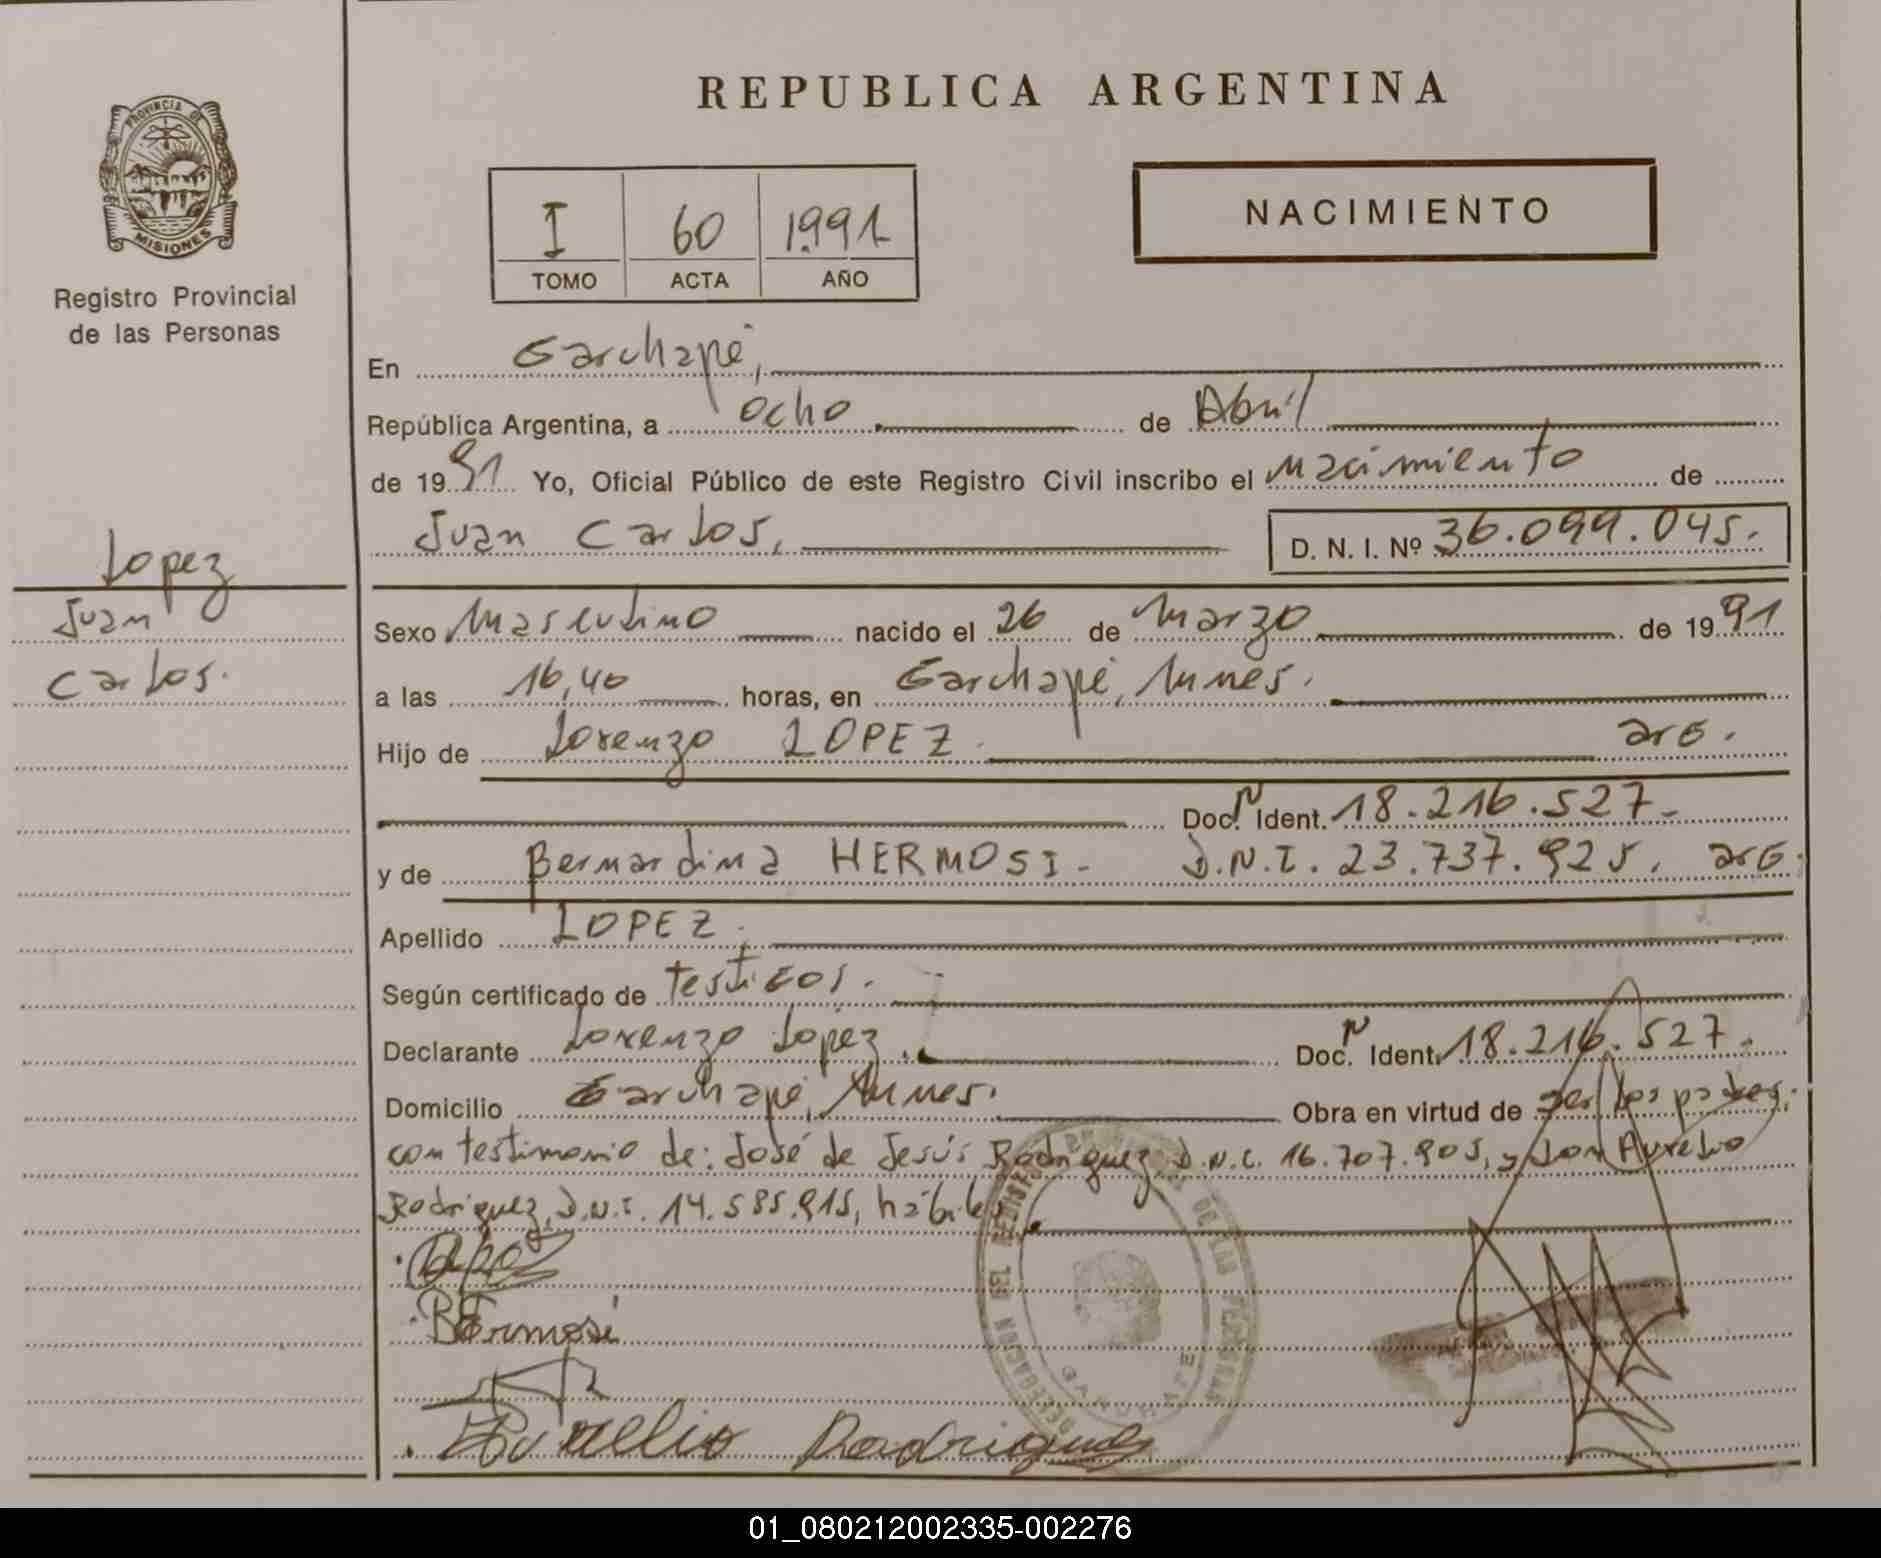 REPUBLICA ARGENTINA
PROVINCIA DE
MISIONES
Registro Provincial
de las Personas
NACIMIENTO
I 60 1991
TOMO ACTA AÑO
En Garuhapé,
República Argentina, a ocho de Abril
de 1991 Yo, Oficial Público de este Registro Civil inscribo el nacimiento de
Juan Carlos, D. N. I. Nº 36.099.045.
Lopez
Juan
Carlos.
Sexo Masculino nacido el 26 de Marzo de 1991
a las 16,40 horas, en Garuhapé, Mnes.
Hijo de Lorenzo LOPEZ. arg.
Doc. N Ident. 18.216.527.
y de Bernardina HERMOSI. D.N.I. 23.737.925. arg.
Apellido LOPEZ.
Según certificado de testigos.
Declarante Lorenzo Lopez. Doc. N Ident. 18.216.527.
Domicilio Garuhapé, Mnes. Obra en virtud de ser los padres;
con testimonio de: José de Jesús Rodriguez D.N.I. 16.707.905, y don Aurelio
Rodriguez, D.N.I. 14.585.915, hábiles.
DELEGACION DEL REGISTRO PROVINCIAL DE LAS PERSONAS
GARUHAPE
BHermosi
Aurelio Rodriguez
01_080212002335-002276